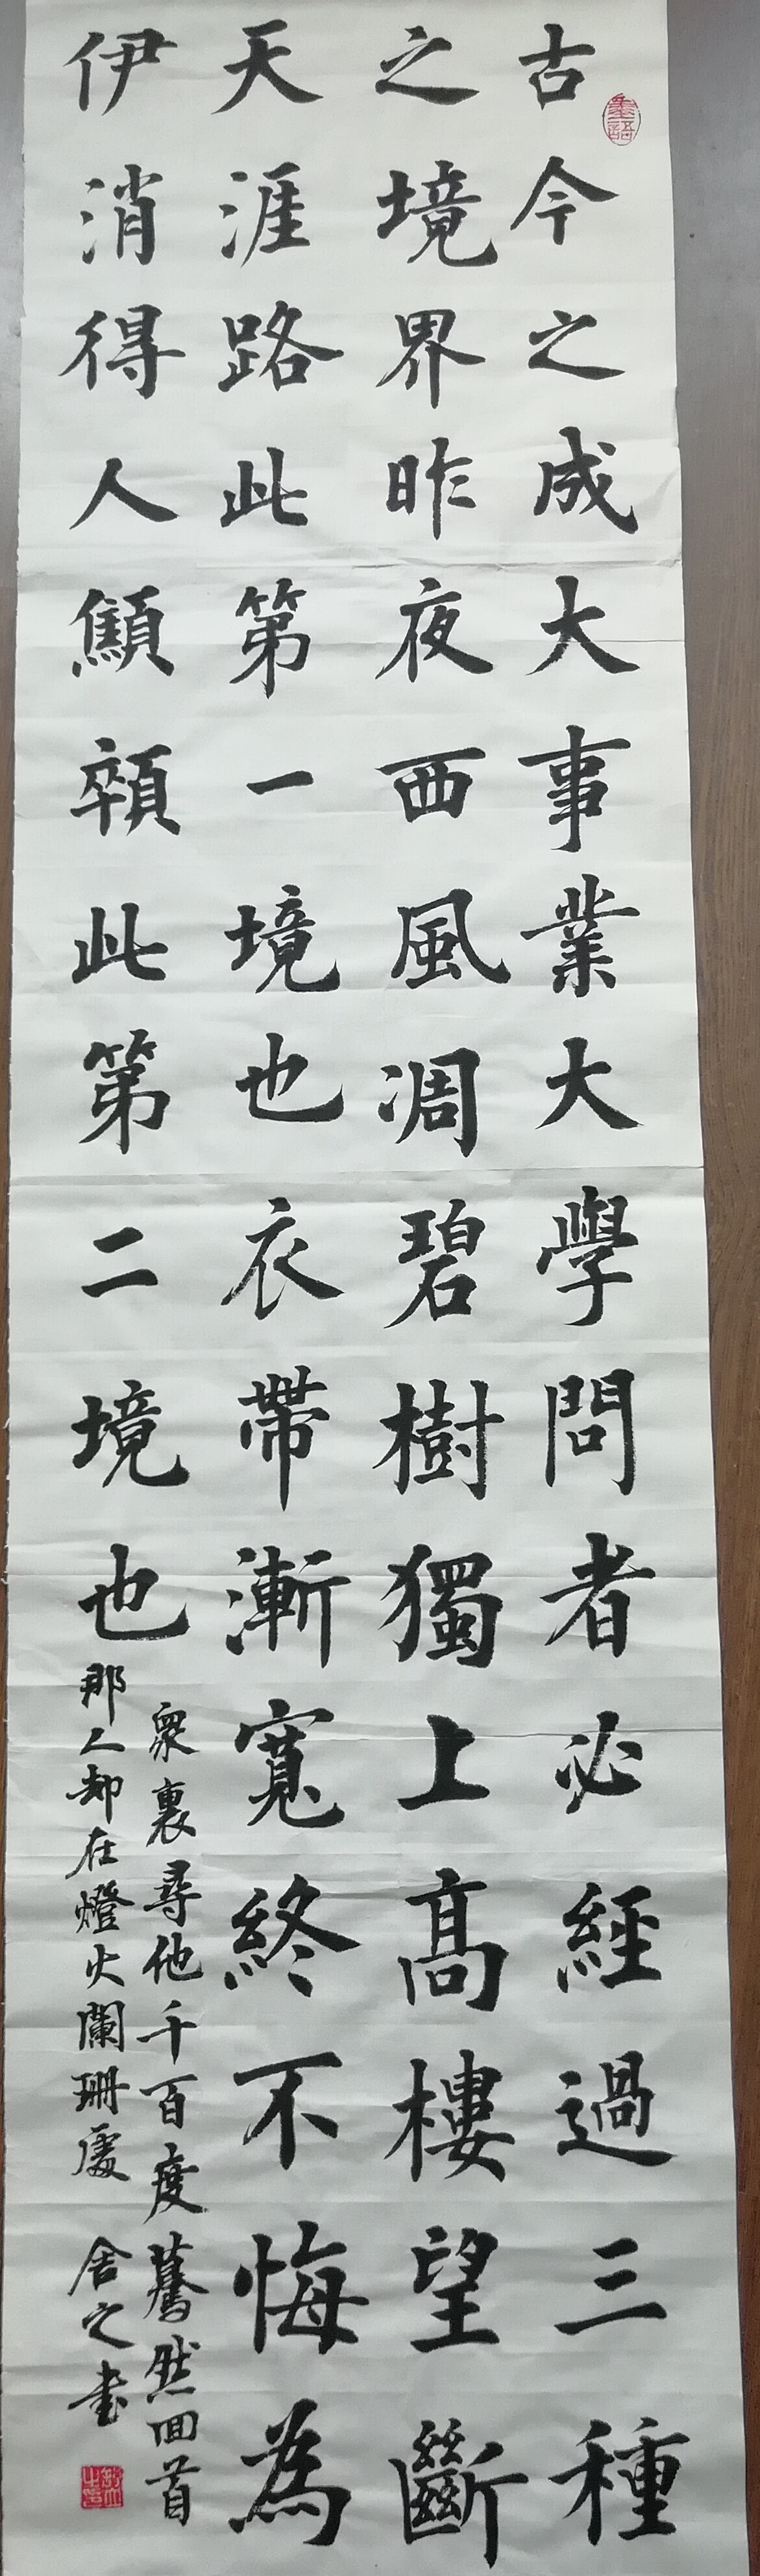 古今之成大事業大學問者必經過三種
之境界昨夜西風凋碧樹獨上高樓望斷
天涯路此第一境也衣帶漸寬終不悔為
伊消得人顦顇此第二境也
眾裏尋他千百度驀然回首
那人却在燈火闌珊處 舍之書
墨語